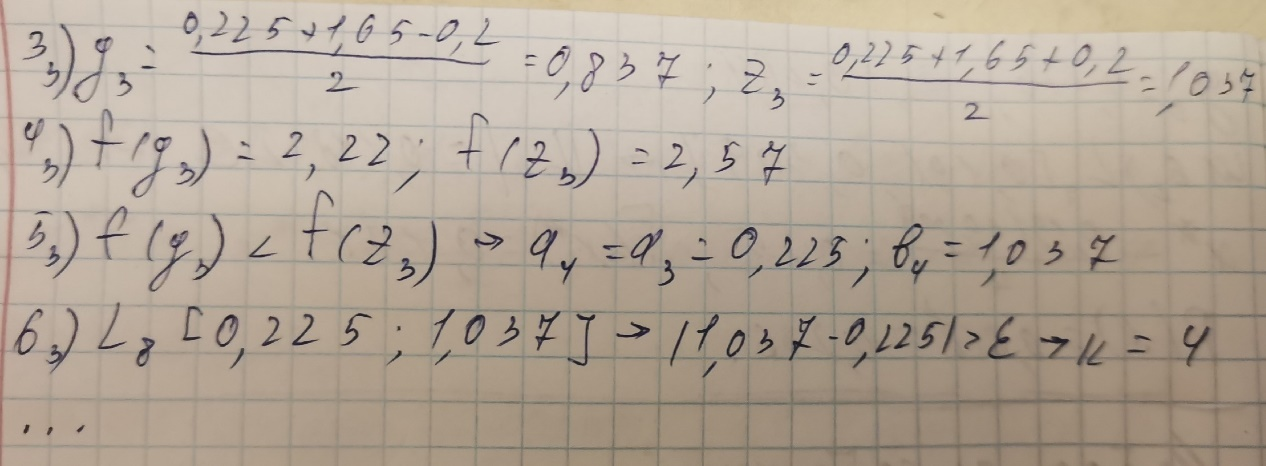 3₃) y₃ = (0,225+1,65-0,2)/2 = 0,837 ; z₃ = (0,225+1,65+0,2)/2 = 1,037
4₃) f(y₃) = 2,22 ; f(z₃) = 2,57
5₃) f(y₃) < f(z₃) → a₄ = a₃ = 0,225 ; b₄ = 1,037
6₃) L₈ [0,225 ; 1,037] → |1,037-0,225| > ε → k = 4
...